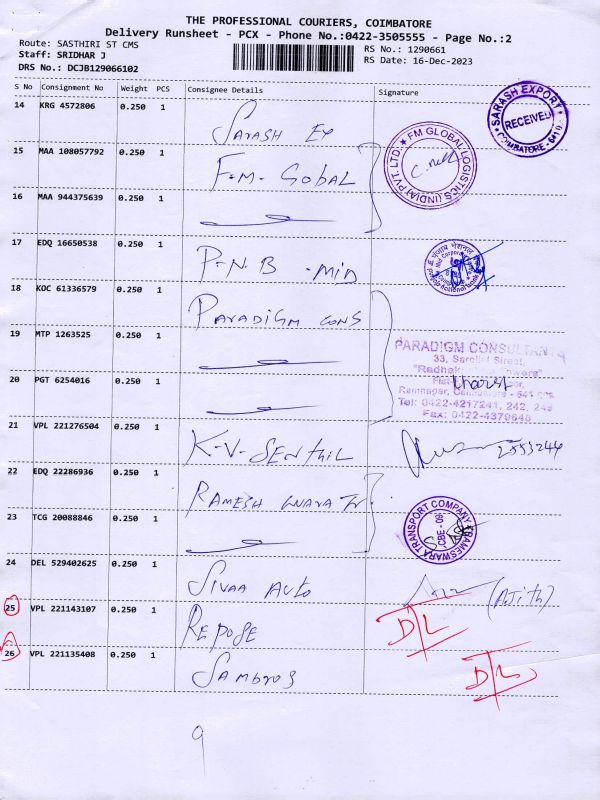 THE PROFESSIONAL COURIERS, COIMBATORE
Delivery Runsheet - PCX - Phone No.:0422-3505555 - Page No.:2
Route: SASTHIRI ST CMS
RS No.: 1290661
Staff: SRIDHAR J
RS Date: 16-Dec-2023
DRS No.: DCJB129066102
S No Consignment No Weight PCS Consignee Details Signature
14 KRG 4572806 0.250 1 SARASH EX
SARASH EXPORT
RECEIVED
COIMBATORE - 641
15 MAA 108057792 0.250 1 F.M. GOBAL
FM GLOBAL LOGISTICS (INDIA) PVT. LTD.
16 MAA 944375639 0.250 1
17 EDQ 16650538 0.250 1 P.N.B - MID
18 KOC 61336579 0.250 1 PARADIGM CONS
19 MTP 1263525 0.250 1
PARADIGM CONSULTANTS
33, Street,
20 PGT 6254016 0.250 1
Ramnagar, Coimbatore - 641
Tel: 0422-4217241, 242, 243
Fax: 0422-4379648
21 VPL 221276504 0.250 1 K-V-SENTHIL
2553244
22 EDQ 22286936 0.250 1 RAMESH WARA Tr.
23 TCG 20088846 0.250 1
RAMESWARA TRANSPORT COMPANY
CBE - 09
24 DEL 529402625 0.250 1 SIVAA AUTO (AJith)
25 VPL 221143107 0.250 1 REPOSE D/L
26 VPL 221135408 0.250 1 SAMBROS D/L
9